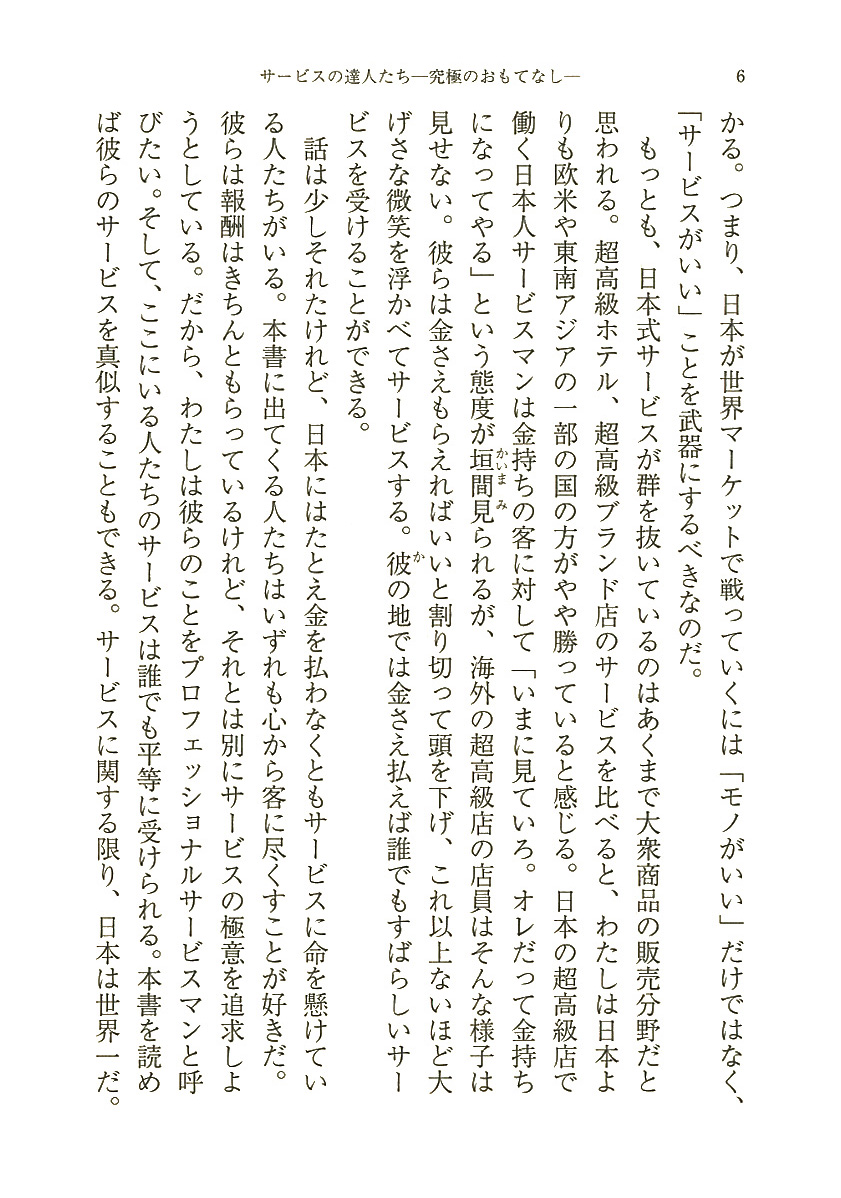 サービスの達人たち―究極のおもてなし―
6
かる。つまり、日本が世界マーケットで戦っていくには「モノがいい」だけではなく、
「サービスがいい」ことを武器にするべきなのだ。
もっとも、日本式サービスが群を抜いているのはあくまで大衆商品の販売分野だと
思われる。超高級ホテル、超高級ブランド店のサービスを比べると、わたしは日本よ
りも欧米や東南アジアの一部の国の方がやや勝っていると感じる。日本の超高級店で
働く日本人サービスマンは金持ちの客に対して「いまに見ていろ。オレだって金持ち
になってやる」という態度が垣間見られるが、海外の超高級店の店員はそんな様子は
かいまみ
見せない。彼らは金さえもらえればいいと割り切って頭を下げ、これ以上ないほど大
げさな微笑を浮かべてサービスする。彼の地では金さえ払えば誰でもすばらしいサー
か
ビスを受けることができる。
話は少しそれたけれど、日本にはたとえ金を払わなくともサービスに命を懸けてい
る人たちがいる。本書に出てくる人たちはいずれも心から客に尽くすことが好きだ。
彼らは報酬はきちんともらっているけれど、それとは別にサービスの極意を追求しよ
うとしている。だから、わたしは彼らのことをプロフェッショナルサービスマンと呼
びたい。そして、ここにいる人たちのサービスは誰でも平等に受けられる。本書を読め
ば彼らのサービスを真似することもできる。サービスに関する限り、日本は世界一だ。